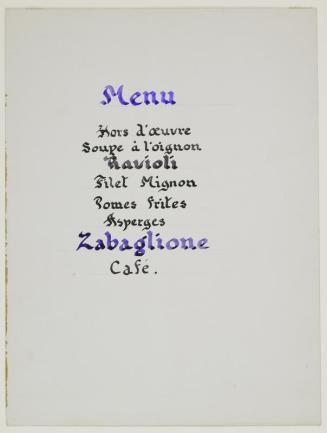 Menu
Hors d'œuvre
Soupe à l'oignon
Ravioli
Filet Mignon
Pomes frites
Asperges
Zabaglione
Café.